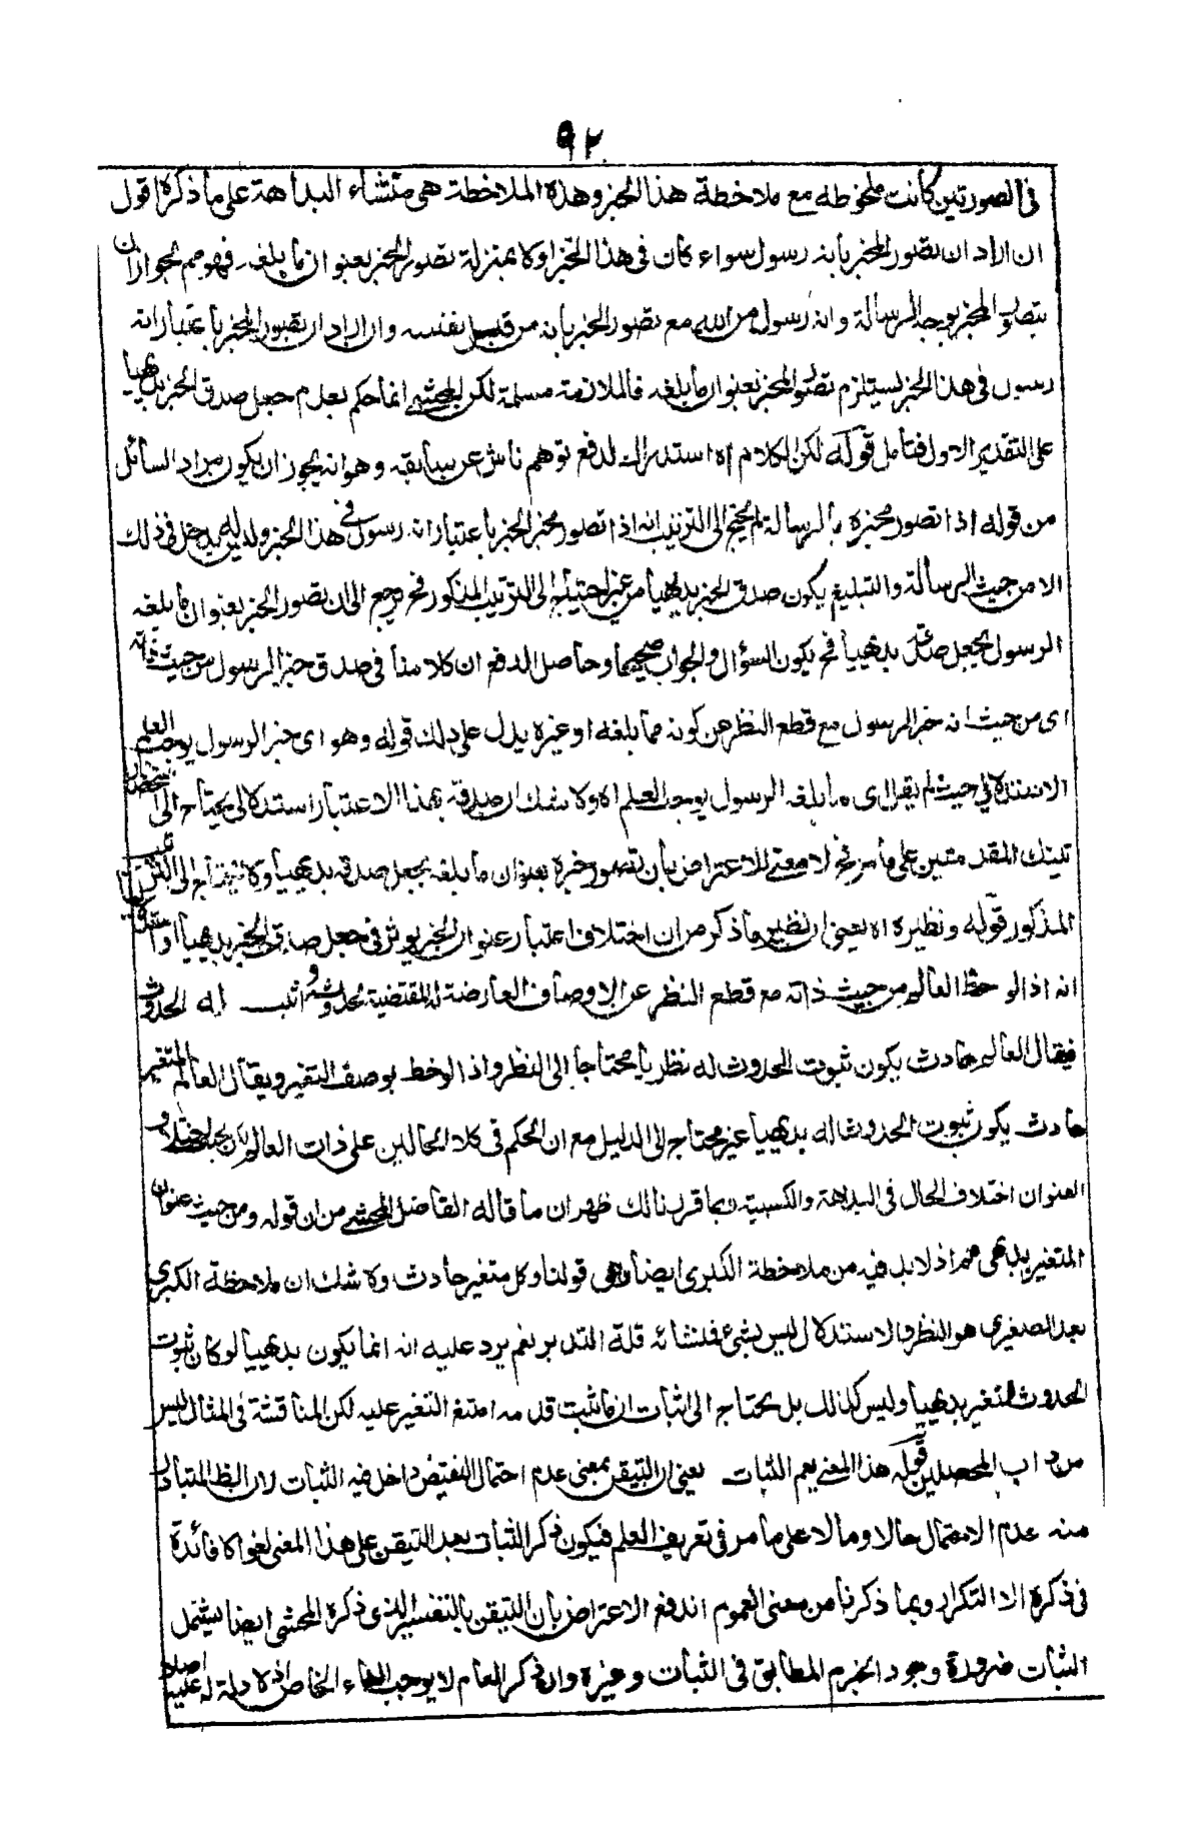 ٩٢
فى الصورتين كانت ملحوظه مع ملاحظة هذا الخبر وهذه الملاحظة هى منشاء البداهة على ما ذكره اقول
ان اراد ان تصور المخبر بانه رسول سواء كان فى هذا الخبر اولا بمنزلة تصور الخبر بعنوان ما بلغه فهو مم لجواز ان
يتصور المخبر بوجه الرسالة وانه رسول من الله مع تصور الخبر بانه من قبل نفسه وان اراد ان تصور المخبر باعتبار انه
رسول فى هذا الخبر يستلزم تصور الخبر بعنوان ما بلغه فالملازمة مسلمة لكن المحشى انما حكم بعدم جعل صدق الخبر بديهيا
على التقدير الاول فتامل قوله لكن الكلام اه استدراك لدفع توهم ناش عن سابقه وهو انه يجوز ان يكون مراد السائل
من قوله اذا تصور مخبره بالرسالة لم يحتج الى الترتيب انه اذا تصور مخبر الخبر باعتبار انه رسول فى هذا الخبر وليس له دخل فى ذلك
الا من حيث الرسالة والتبليغ يكون صدق الخبر بديهيا من غير احتياج الى الترتيب المذكور فح يرجع الى ان تصور الخبر بعنوان ما بلغه
الرسول يجعل صدقه بديهيا فح يكون السؤال والجواب صحيحا وحاصل الدفع ان كلامنا فى صدق خبر الرسول من حيث ذاته
اى من حيث انه خبر الرسول مع قطع النظر عن كونه مما بلغه او غيره يدل على ذلك قوله وهو اى خبر الرسول يوجب العلم
الاستدلالى حيث لم يقل اى ما بلغه الرسول يوجب العلم اه ولا شك ان صدقه بهذا الاعتبار استدلالى يحتاج الى استحضار
تينك المقدمتين على ما مر فح لا معنى للاعتراض بان تصور خبره بعنوان ما بلغه يجعل صدقه بديهيا ولا يحتاج الى الترتيب
المذكور قوله ونظيره اه يعنى ان نظير ما ذكر من ان اختلاف اعتبار عنوان الخبر يوثر فى جعل صدق الخبر بديهيا او استدلاليا
انه اذا لوحظ العالم من حيث ذاته مع قطع النظر عن الاوصاف العارضة له المقتضية لحدوثه واثبت له الحدوث
فيقال العالم حادث يكون ثبوت الحدوث له نظريا محتاجا الى النظر واذا لوحظ بوصف التغير ويقال العالم المتغير
حادث يكون ثبوت الحدوث له بديهيا غير محتاج الى الدليل مع ان الحكم فى كلا الحالين على ذات العالم لكن باختلاف
العنوان اختلاف الحال فى البداهة والكسبية وبما قررنا لك ظهر ان ما قاله الفاضل المحشى من ان قوله ومن حيث عنوان
المتغير بديهى مم اذ لا بد فيه من ملاحظة الكبرى ايضا وهى قولنا وكل متغير حادث ولا شك ان ملاحظة الكبرى
بعد الصغرى هو النظر والاستدلال ليس بشئ فمنشائه قلة التدبر نعم يرد عليه انه انما يكون بديهيا لو كان ثبوت
الحدوث للمتغير بديهيا وليس كذلك بل يحتاج الى اثبات ان ما ثبت قدمه امتنع التغير عليه لكن المناقشة فى المثال ليس
من داب المحصلين قوله هذا المعنى يعم الثبات يعنى ان التيقن بمعنى عدم احتمال النقيض داخل فيه الثبات لان الظ المتبادر
منه عدم الاحتمال حالا ومالا على ما مر فى تعريف العلم فيكون ذكر الثبات بعد التيقن على هذا المعنى لغوا لا فائدة
فى ذكره الا التكرار وبما ذكرنا من معنى العموم اندفع الاعتراض بان التيقن بالتفسير الذى ذكره المحشى ايضا يشتمل
الثبات ضرورة وجود الجزم المطابق فى الثبات وغيره وان ذكر العام لا يوجب الغاء الخاص اذ لا دلالة له عليه اصلا